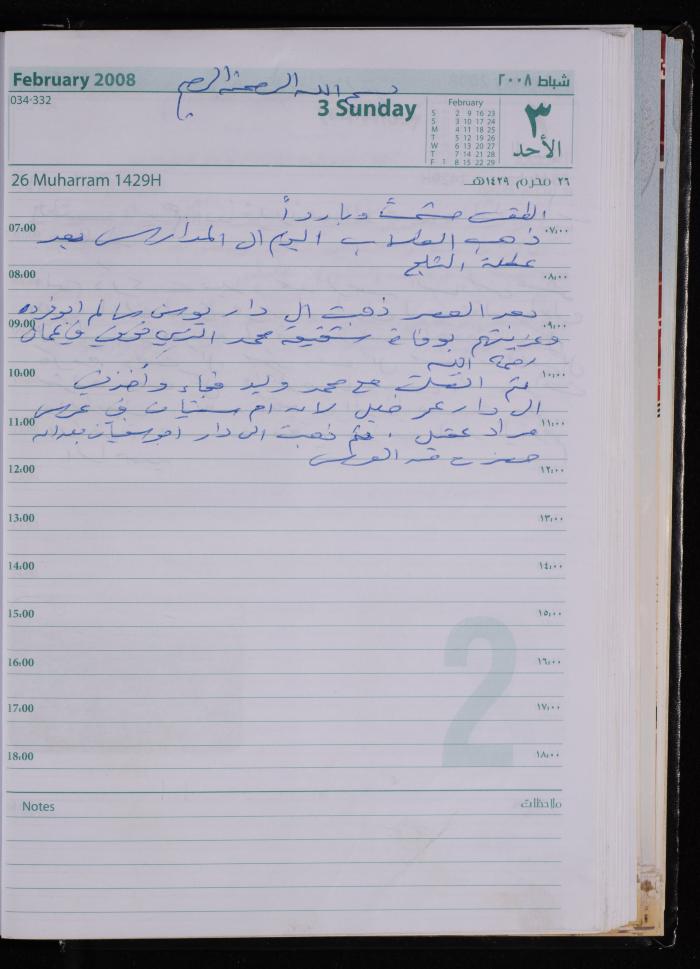 February 2008
شباط ٢٠٠٨
بسم الله الرحمن الرحيم
034-332
3 Sunday
February
S 2 9 16 23
S 3 10 17 24
M 4 11 18 25
T 5 12 19 26
W 6 13 20 27
T 7 14 21 28
F 1 8 15 22 29
٣
الأحد
26 Muharram 1429H
٢٦ محرم ١٤٢٩هـ
الطقس مشمساً وبارداً
07:00 ٠٧:٠٠
ذهب الطلاب اليوم ال المدارس بعد
عطلة الثلج
08:00 ٠٨:٠٠
بعد العصر ذهبت ال دار يوسف سالم ابو فرده
09:00 ٠٩:٠٠
وعزيتهم بوفاة شقيقه محمد الذي توفي في عمان
رحمه الله
10:00 ١٠:٠٠
ثم اتصلت مع محمد وليد فجاء وأخذني
ال دار عمر خليل لانه ام سفيان في عرس
11:00 ١١:٠٠
مراد عقل . ثم ذهبت الى دار ابو سفيان بعد انه
حضرت من العرس
12:00 ١٢:٠٠
13:00 ١٣:٠٠
14:00 ١٤:٠٠
15:00 ١٥:٠٠
16:00 ١٦:٠٠
17:00 ١٧:٠٠
18:00 ١٨:٠٠
2
Notes
ملاحظات